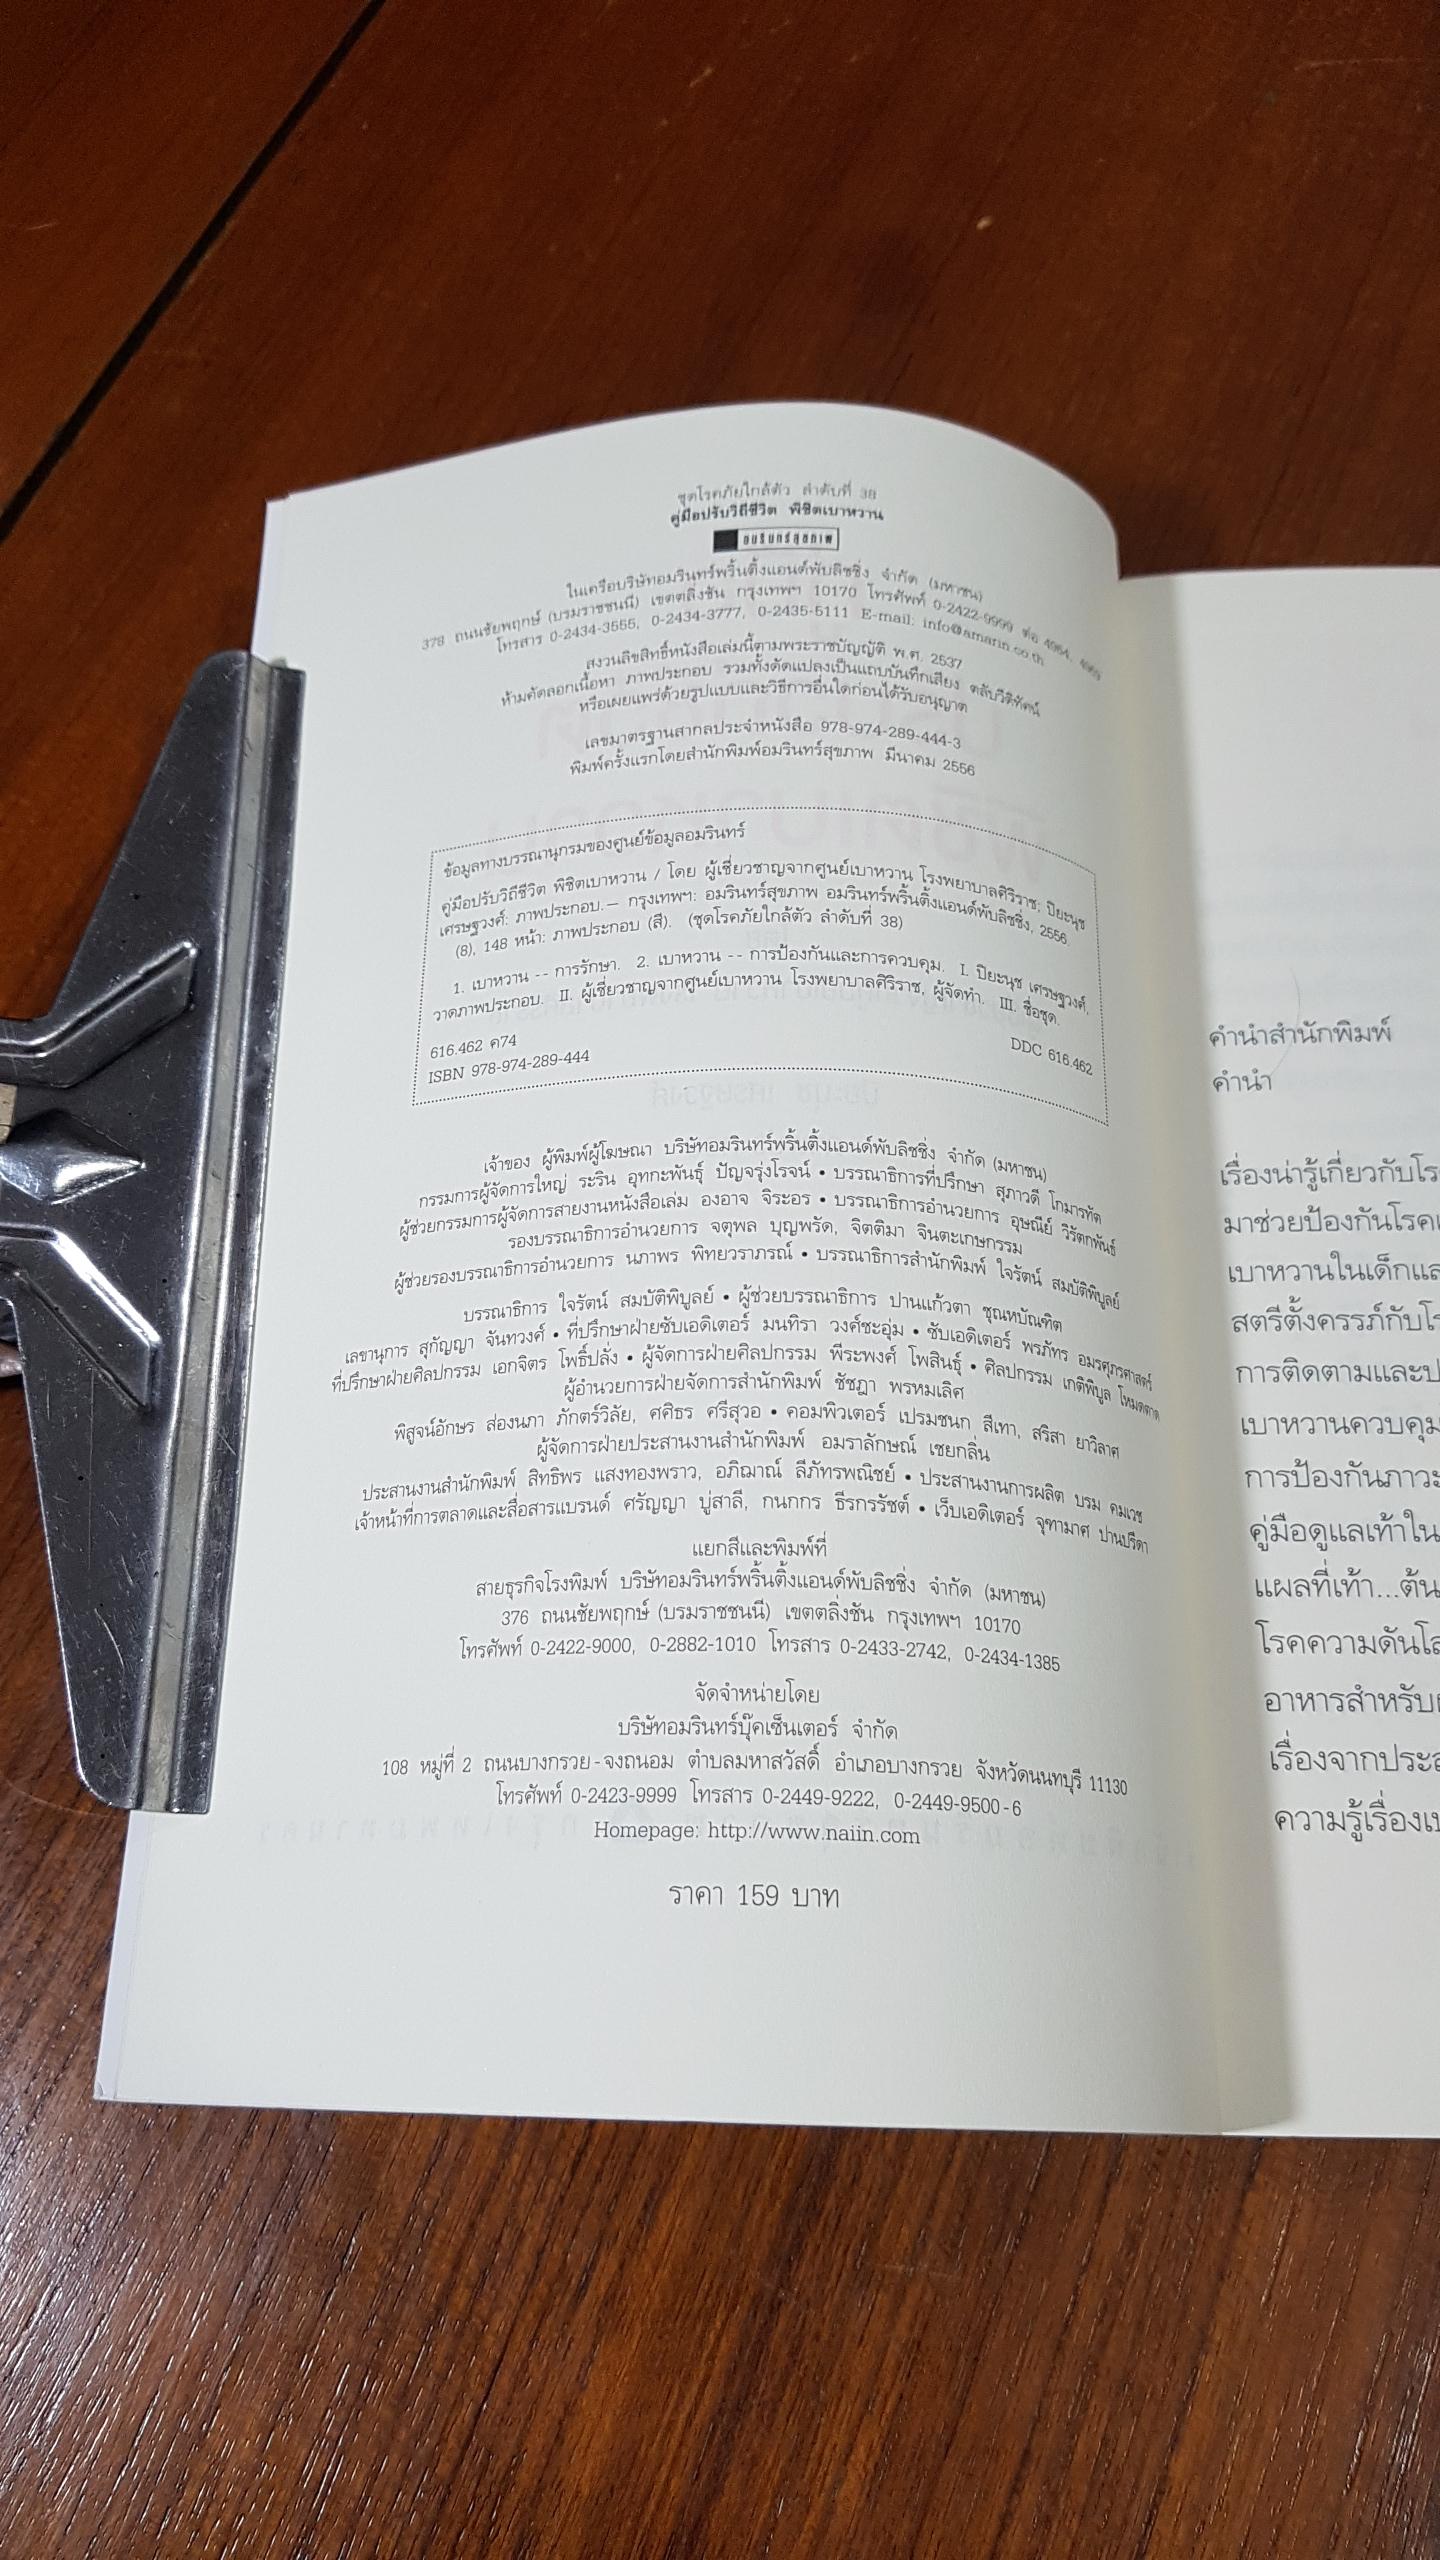 ชุดโรคภัยใกล้ตัว ลำดับที่ 38
คู่มือปรับวิถีชีวิต พิชิตเบาหวาน
อมรินทร์สุขภาพ
ในเครือบริษัทอมรินทร์พริ้นติ้งแอนด์พับลิชชิ่ง จำกัด (มหาชน)
378 ถนนชัยพฤกษ์ (บรมราชชนนี) เขตตลิ่งชัน กรุงเทพฯ 10170 โทรศัพท์ 0-2422-9999 ต่อ 4964, 4969
โทรสาร 0-2434-3555, 0-2434-3777, 0-2435-5111 E-mail: info@amarin.co.th
สงวนลิขสิทธิ์หนังสือเล่มนี้ตามพระราชบัญญัติ พ.ศ. 2537
ห้ามคัดลอกเนื้อหา ภาพประกอบ รวมทั้งดัดแปลงเป็นแถบบันทึกเสียง ตลับวีดิทัศน์
หรือเผยแพร่ด้วยรูปแบบและวิธีการอื่นใดก่อนได้รับอนุญาต
เลขมาตรฐานสากลประจำหนังสือ 978-974-289-444-3
พิมพ์ครั้งแรกโดยสำนักพิมพ์อมรินทร์สุขภาพ มีนาคม 2556
ข้อมูลทางบรรณานุกรมของศูนย์ข้อมูลอมรินทร์
คู่มือปรับวิถีชีวิต พิชิตเบาหวาน / โดย ผู้เชี่ยวชาญจากศูนย์เบาหวาน โรงพยาบาลศิริราช; ปิยะนุช
เศรษฐวงศ์: ภาพประกอบ.— กรุงเทพฯ: อมรินทร์สุขภาพ อมรินทร์พริ้นติ้งแอนด์พับลิชชิ่ง, 2556.
(8), 148 หน้า: ภาพประกอบ (สี). (ชุดโรคภัยใกล้ตัว ลำดับที่ 38)
1. เบาหวาน -- การรักษา. 2. เบาหวาน -- การป้องกันและการควบคุม. I. ปิยะนุช เศรษฐวงศ์,
วาดภาพประกอบ. II. ผู้เชี่ยวชาญจากศูนย์เบาหวาน โรงพยาบาลศิริราช, ผู้จัดทำ. III. ชื่อชุด.
616.462 ค74
DDC 616.462
ISBN 978-974-289-444
เจ้าของ ผู้พิมพ์ผู้โฆษณา บริษัทอมรินทร์พริ้นติ้งแอนด์พับลิชชิ่ง จำกัด (มหาชน)
กรรมการผู้จัดการใหญ่ ระริน อุทกะพันธุ์ ปัญจรุ่งโรจน์ • บรรณาธิการที่ปรึกษา สุภาวดี โกมารทัต
ผู้ช่วยกรรมการผู้จัดการสายงานหนังสือเล่ม องอาจ จิระอร • บรรณาธิการอำนวยการ อุษณีย์ วิรัตกพันธ์
รองบรรณาธิการอำนวยการ จตุพล บุญพรัด, จิตติมา จินตะเกษกรรม
ผู้ช่วยรองบรรณาธิการอำนวยการ นภาพร พิทยวราภรณ์ • บรรณาธิการสำนักพิมพ์ ใจรัตน์ สมบัติพิบูลย์
บรรณาธิการ ใจรัตน์ สมบัติพิบูลย์ • ผู้ช่วยบรรณาธิการ ปานแก้วตา ชุณหบัณฑิต
เลขานุการ สุกัญญา จันทวงศ์ • ที่ปรึกษาฝ่ายซับเอดิเตอร์ มนทิรา วงศ์ชะอุ่ม • ซับเอดิเตอร์ พรภัทร อมรศุภรศาสตร์
ที่ปรึกษาฝ่ายศิลปกรรม เอกจิตร โพธิ์ปลั่ง • ผู้จัดการฝ่ายศิลปกรรม พีระพงศ์ โพสินธุ์ • ศิลปกรรม เกติพิบูล โหมดตาด
ผู้อำนวยการฝ่ายจัดการสำนักพิมพ์ ชัชฎา พรหมเลิศ
พิสูจน์อักษร ส่องนภา ภักตร์วิลัย, ศศิธร ศรีสุวอ • คอมพิวเตอร์ เปรมชนก สีเทา, สริสา ยาวิลาศ
ผู้จัดการฝ่ายประสานงานสำนักพิมพ์ อมราลักษณ์ เชยกลิ่น
ประสานงานสำนักพิมพ์ สิทธิพร แสงทองพราว, อภิฌาณ์ ลีภัทรพณิชย์ • ประสานงานการผลิต บรม คมเวช
เจ้าหน้าที่การตลาดและสื่อสารแบรนด์ ศรัญญา บู่สาลี, กนกกร ธีรกรรัชต์ • เว็บเอดิเตอร์ จุฑามาศ ปานปรีดา
แยกสีและพิมพ์ที่
สายธุรกิจโรงพิมพ์ บริษัทอมรินทร์พริ้นติ้งแอนด์พับลิชชิ่ง จำกัด (มหาชน)
376 ถนนชัยพฤกษ์ (บรมราชชนนี) เขตตลิ่งชัน กรุงเทพฯ 10170
โทรศัพท์ 0-2422-9000, 0-2882-1010 โทรสาร 0-2433-2742, 0-2434-1385
จัดจำหน่ายโดย
บริษัทอมรินทร์บุ๊คเซ็นเตอร์ จำกัด
108 หมู่ที่ 2 ถนนบางกรวย-จงถนอม ตำบลมหาสวัสดิ์ อำเภอบางกรวย จังหวัดนนทบุรี 11130
โทรศัพท์ 0-2423-9999 โทรสาร 0-2449-9222, 0-2449-9500-6
Homepage: http://www.naiin.com
ราคา 159 บาท
คำนำสำนักพิมพ์
คำนำ
เรื่องน่ารู้เกี่ยวกับโร
มาช่วยป้องกันโรคเ
เบาหวานในเด็กแล
สตรีตั้งครรภ์กับโร
การติดตามและป
เบาหวานควบคุม
การป้องกันภาวะ
คู่มือดูแลเท้าใน
แผลที่เท้า...ต้น
โรคความดันโล
อาหารสำหรับผ
เรื่องจากประส
ความรู้เรื่องเบ